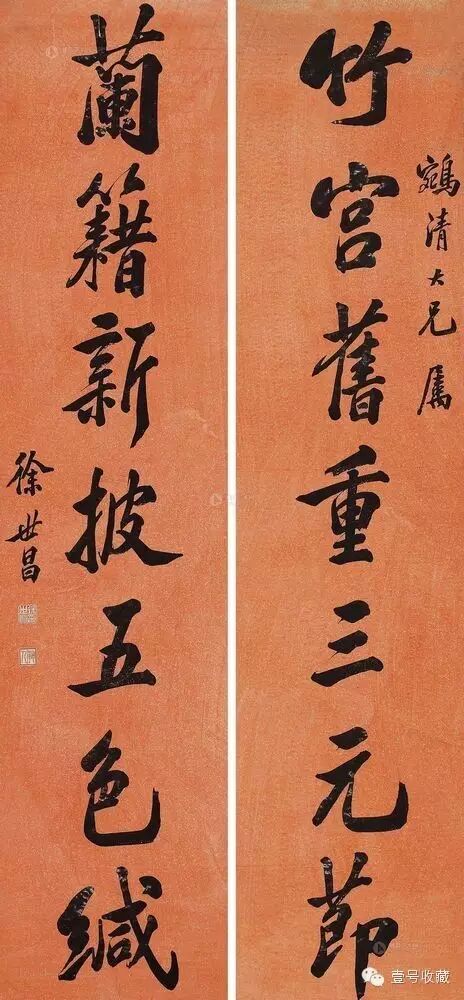 鵷清大兄屬
竹宮舊重三元節
蘭籍新披五色緘
徐世昌
壹号收藏